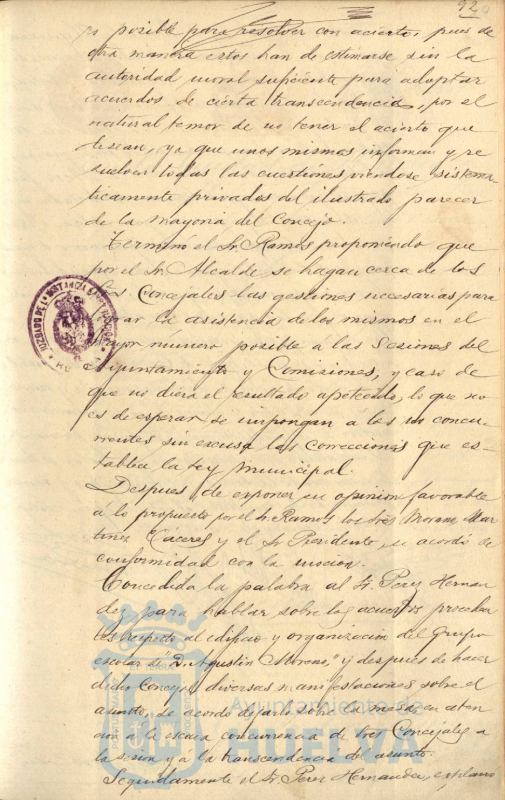 92
es posible para resolver con acierto, pues de
otra manera estos han de estimarse sin la
autoridad moral suficiente para adoptar
acuerdos de cierta transcendencia, por el
natural temor de no tener el acierto que
desean, ya que unos mismos informan y re
suelven todas las cuestiones viendose sistema-
ticamente privados del ilustrado parecer
de la mayoria del Concejo.
Termino el Sr. Ramos proponiendo que
por el Sr. Alcalde se hagan cerca de los
Concejales las gestiones necesarias para
la asistencia de los mismos en el
mayor numero posible a las Sesiones del
Ayuntamiento y Comisiones, y caso de
que no diera el resultado apetecido, lo que no
es de esperar, se impongan a los no concu-
rrentes sin excusa las correcciones que es-
tablece la Ley Municipal.
Despues de exponer su opinion favorable
a lo propuesto por el Sr. Ramos los Sres. Moreno, Mar
tinez Cáceres y el Sr. Presidente, se acordó de
conformidad con la mocion.
Concedida la palabra al Sr. Perez Hernan
dez para hablar sobre los acuerdos
respecto al edificio y organizacion del Grupo
escolar de "D. Agustin Moreno," y despues de hacer
dicho Concejal diversas manifestaciones sobre el
asunto, se acordo dejarlo sobre la mesa en aten
cion a la escasa concurrencia de Sres. Concejales a
la sesion y a la transcendencia del asunto.
Seguidamente el Sr. Perez Hernandez, explano
JUZGADO DE 1ª INSTANCIA
HUELVA
Ayuntamiento de
HUELVA